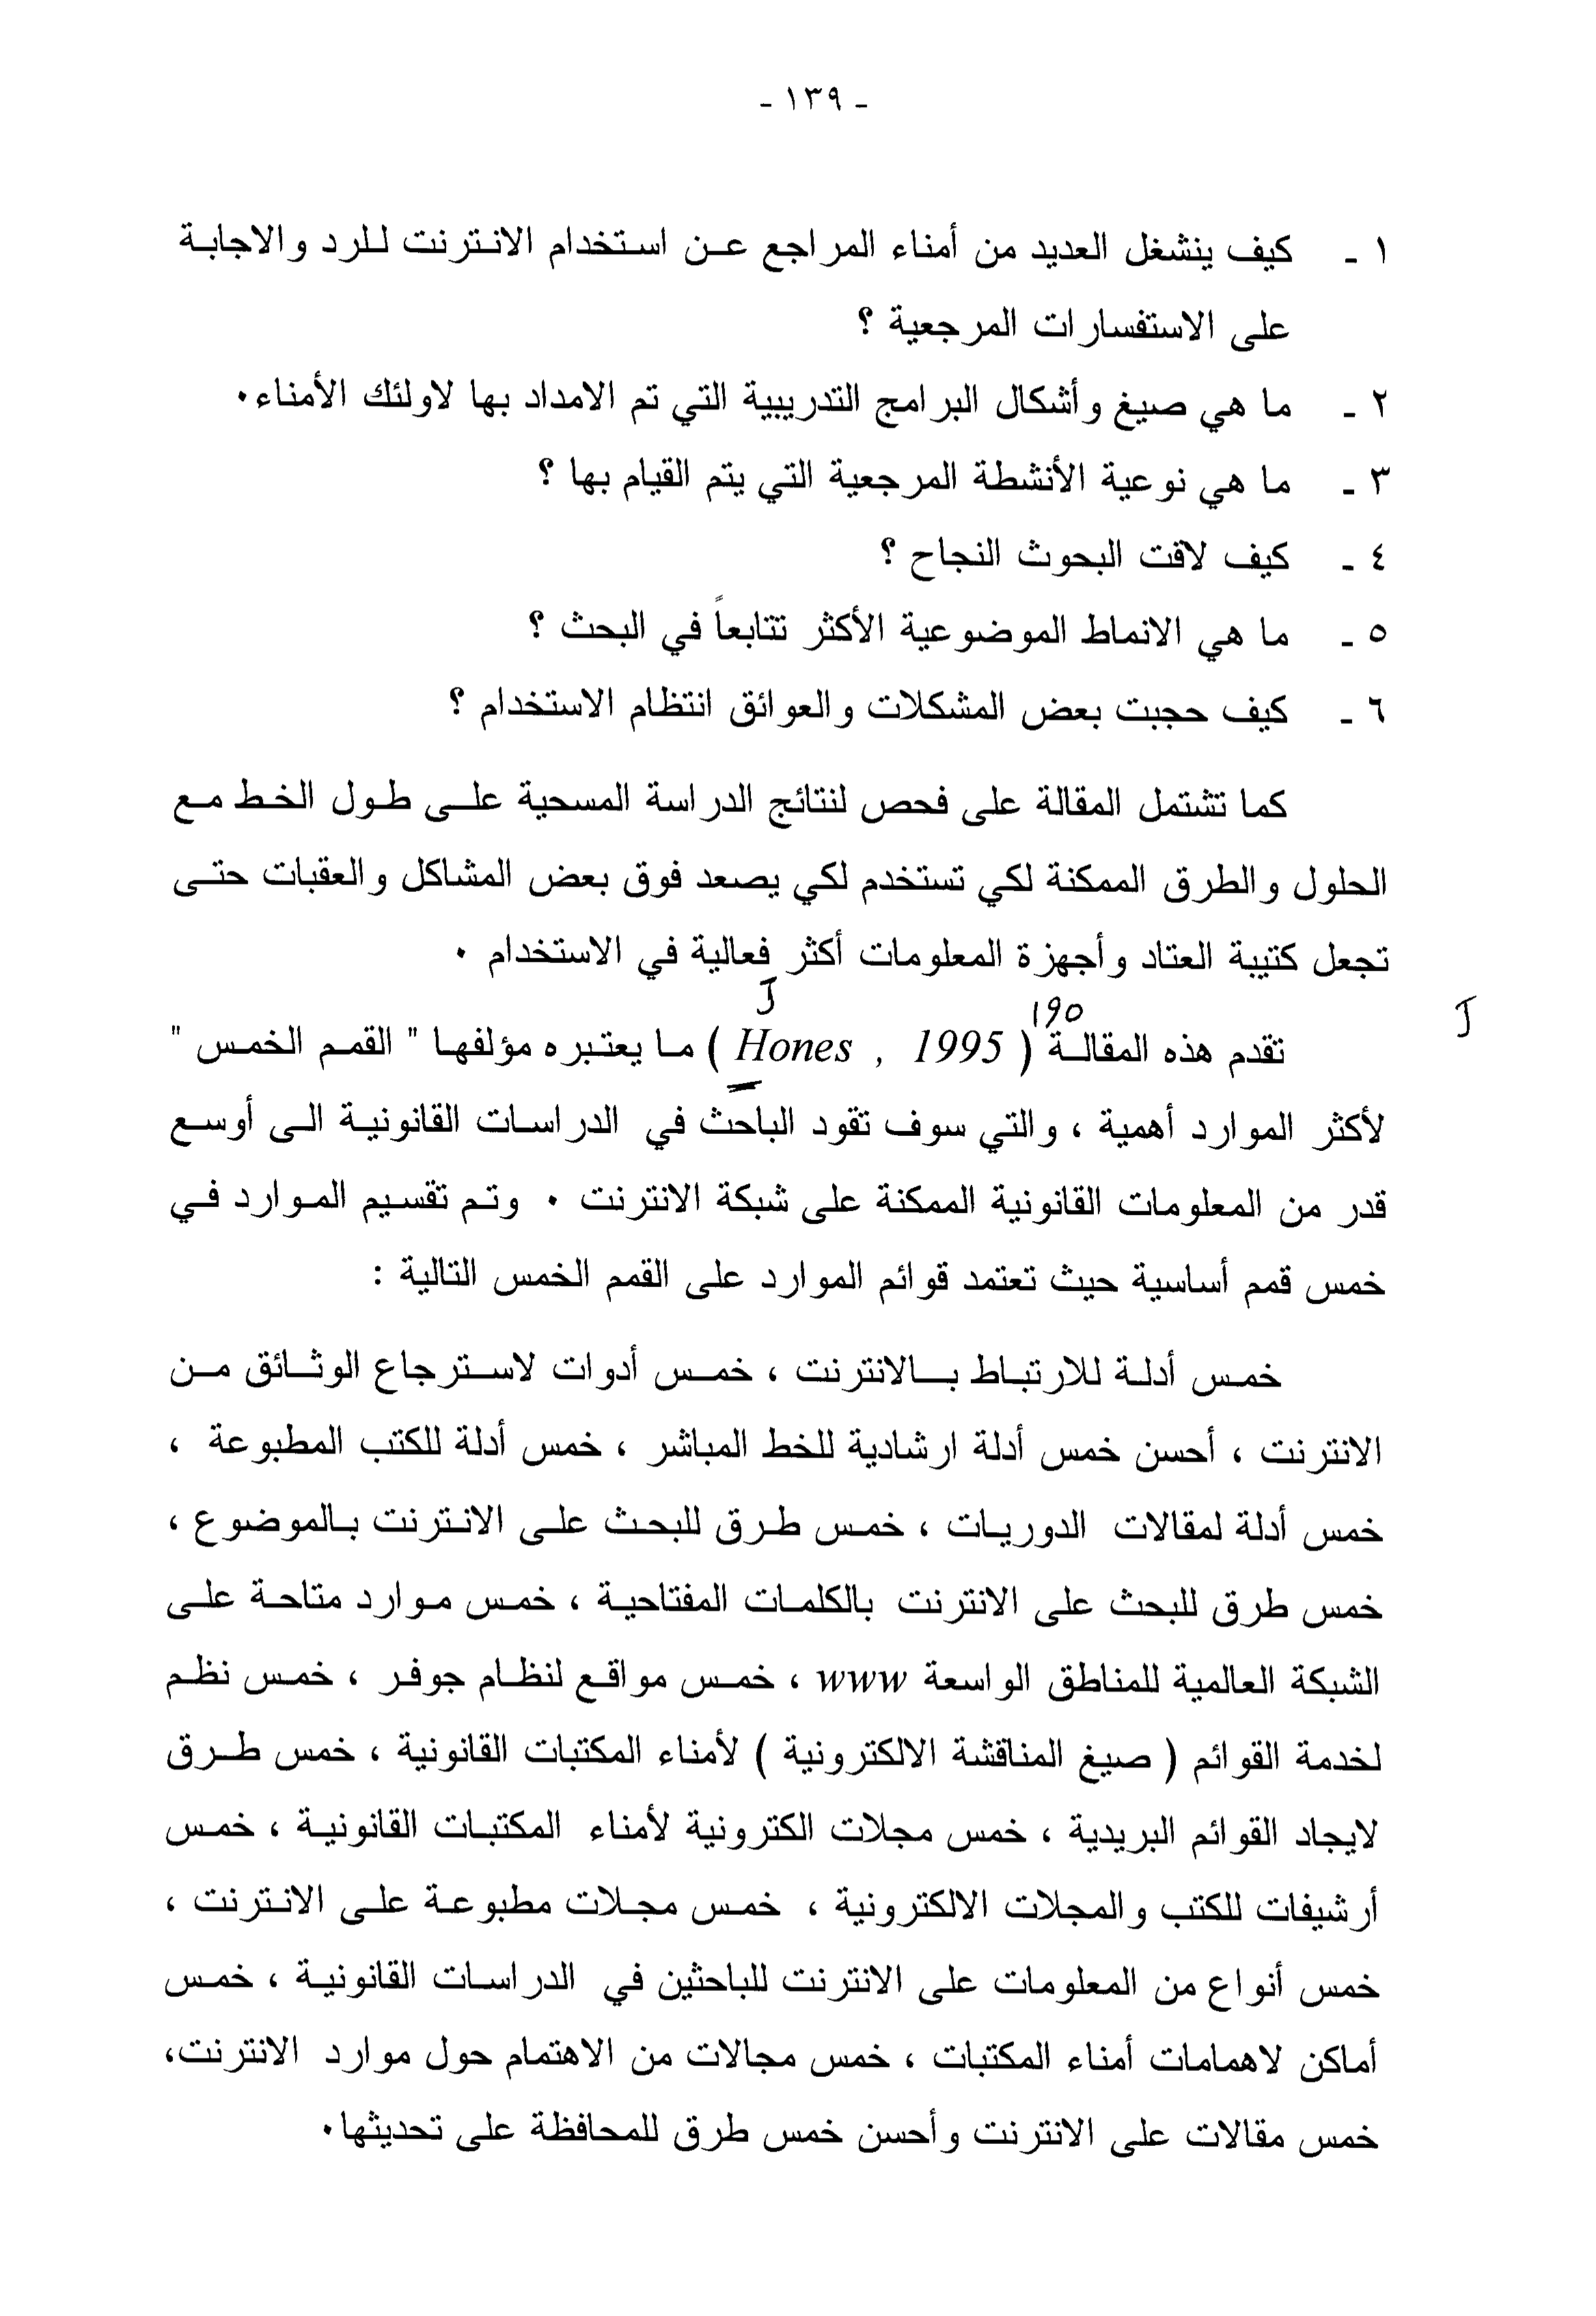 - ١٣٩ -
١ - كيف ينشغل العديد من أمناء المراجع عن استخدام الانترنت للرد والاجابة
على الاستفسارات المرجعية ؟
٢ - ما هي صيغ وأشكال البرامج التدريبية التي تم الامداد بها لاولئك الأمناء٠
٣ - ما هي نوعية الأنشطة المرجعية التي يتم القيام بها ؟
٤ - كيف لاقت البحوث النجاح ؟
٥ - ما هي الانماط الموضوعية الأكثر تتابعاً في البحث ؟
٦ - كيف حجبت بعض المشكلات والعوائق انتظام الاستخدام ؟
كما تشتمل المقالة على فحص لنتائج الدراسة المسحية على طول الخط مع
الحلول والطرق الممكنة لكي تستخدم لكي يصعد فوق بعض المشاكل والعقبات حتى
تجعل كتيبة العتاد وأجهزة المعلومات أكثر فعالية في الاستخدام ٠
J
١٩٥
J
تقدم هذه المقالة ( Hones , 1995 ) ما يعتبره مؤلفها " القمم الخمس "
لأكثر الموارد أهمية ، والتي سوف تقود الباحث في الدراسات القانونية الى أوسع
قدر من المعلومات القانونية الممكنة على شبكة الانترنت ٠ وتم تقسيم الموارد في
خمس قمم أساسية حيث تعتمد قوائم الموارد على القمم الخمس التالية :
خمس أدلة للارتباط بالانترنت ، خمس أدوات لاسترجاع الوثائق من
الانترنت ، أحسن خمس أدلة ارشادية للخط المباشر ، خمس أدلة للكتب المطبوعة ،
خمس أدلة لمقالات الدوريات ، خمس طرق للبحث على الانترنت بالموضوع ،
خمس طرق للبحث على الانترنت بالكلمات المفتاحية ، خمس موارد متاحة على
الشبكة العالمية للمناطق الواسعة www ، خمس مواقع لنظام جوفر ، خمس نظم
لخدمة القوائم ( صيغ المناقشة الالكترونية ) لأمناء المكتبات القانونية ، خمس طرق
لايجاد القوائم البريدية ، خمس مجلات الكترونية لأمناء المكتبات القانونية ، خمس
أرشيفات للكتب والمجلات الالكترونية ، خمس مجلات مطبوعة على الانترنت ،
خمس أنواع من المعلومات على الانترنت للباحثين في الدراسات القانونية ، خمس
أماكن لاهمامات أمناء المكتبات ، خمس مجالات من الاهتمام حول موارد الانترنت،
خمس مقالات على الانترنت وأحسن خمس طرق للمحافظة على تحديثها٠